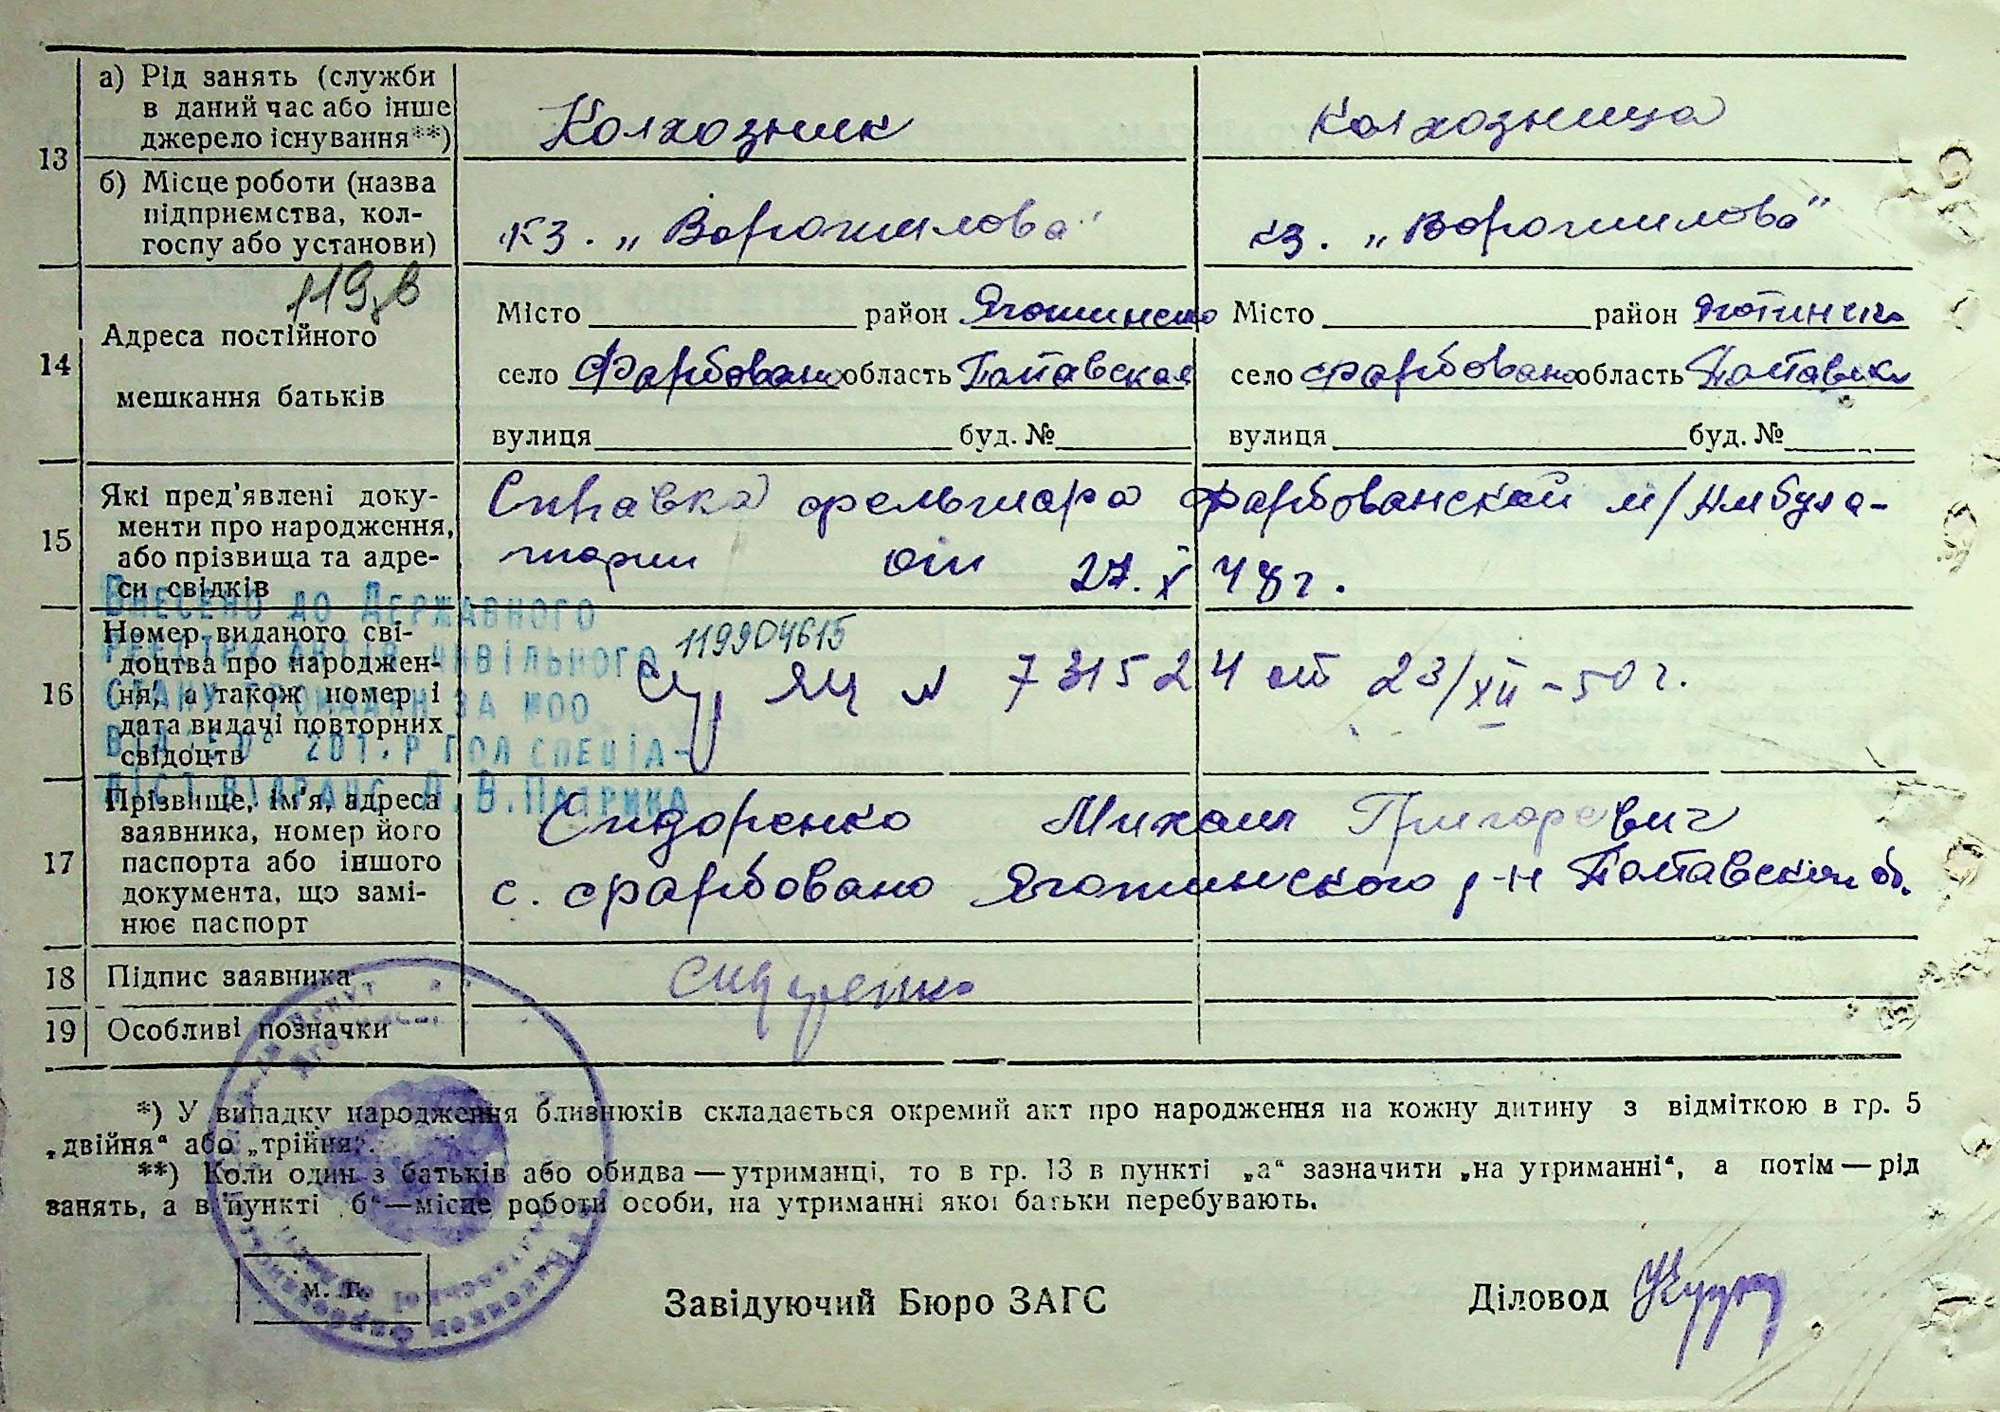 13
а) Рід занять (служби
в даний час або інше
джерело існування**)
Колхозник
Колхозница
б) Місце роботи (назва
підприємства, кол-
госпу або установи)
кз. „Ворошилова"
кз. „Ворошилова"
14
Адреса постійного
мешкання батьків
Місто район Яготинско
село Фарбовано область Полтавская
вулиця буд. №
Місто район
село Фарбовано область
вулиця буд. №
15
Які пред'явлені доку-
менти про народження,
або прізвища та адре-
си свідків
Справка фельшара Фарбованской м/Амбула-
тории от 27. X 48 г.
16
Номер виданого сві-
доцтва про народжен-
ня, а також номер і
дата видачі повторних
свідоцтв
119904615
ЯЦ № 731524 от 23/XII - 50 г.
Внесено до Державного
реєстру актів цивільного
стану громадян за №00
201. р гол спеціа-
17
Прізвище, ім'я, адреса
заявника, номер його
паспорта або іншого
документа, що замі-
нює паспорт
Сидоренко Михаил Григоревич
с. Фарбовано Яготинского р-н Полтавской об.
18
Підпис заявника
Сидоренко
19
Особливі позначки
*) У випадку народження близнюків складається окремий акт про народження на кожну дитину з відміткою в гр. 5
„двійня“ або „трійня“.
**) Коли один з батьків або обидва — утриманці, то в гр. 13 в пункті „а“ зазначити „на утриманні“, а потім — рід
занять, а в пункті „б“ — місце роботи особи, на утриманні якої батьки перебувають.
м. п.
Завідуючий Бюро ЗАГС
Діловод